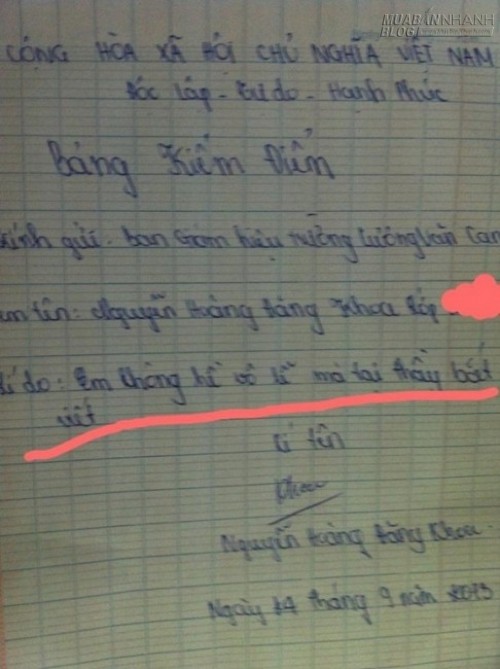 MUABÁNNHANH
BLOG
CỘNG HÒA XÃ HỘI CHỦ NGHĨA VIỆT NAM
Độc lập - Tự do - Hạnh Phúc
Bảng Kiểm Điểm
kính gửi. ban Giám hiệu trường Lương Văn Can
em tên: Nguyễn Hoàng Đăng Khoa lớp
Lí do: Em không hề vô lễ mà tại thầy bắt
viết
kí tên
Khoa
Nguyễn Hoàng Đăng Khoa
Ngày 14 tháng 9 năm 2013